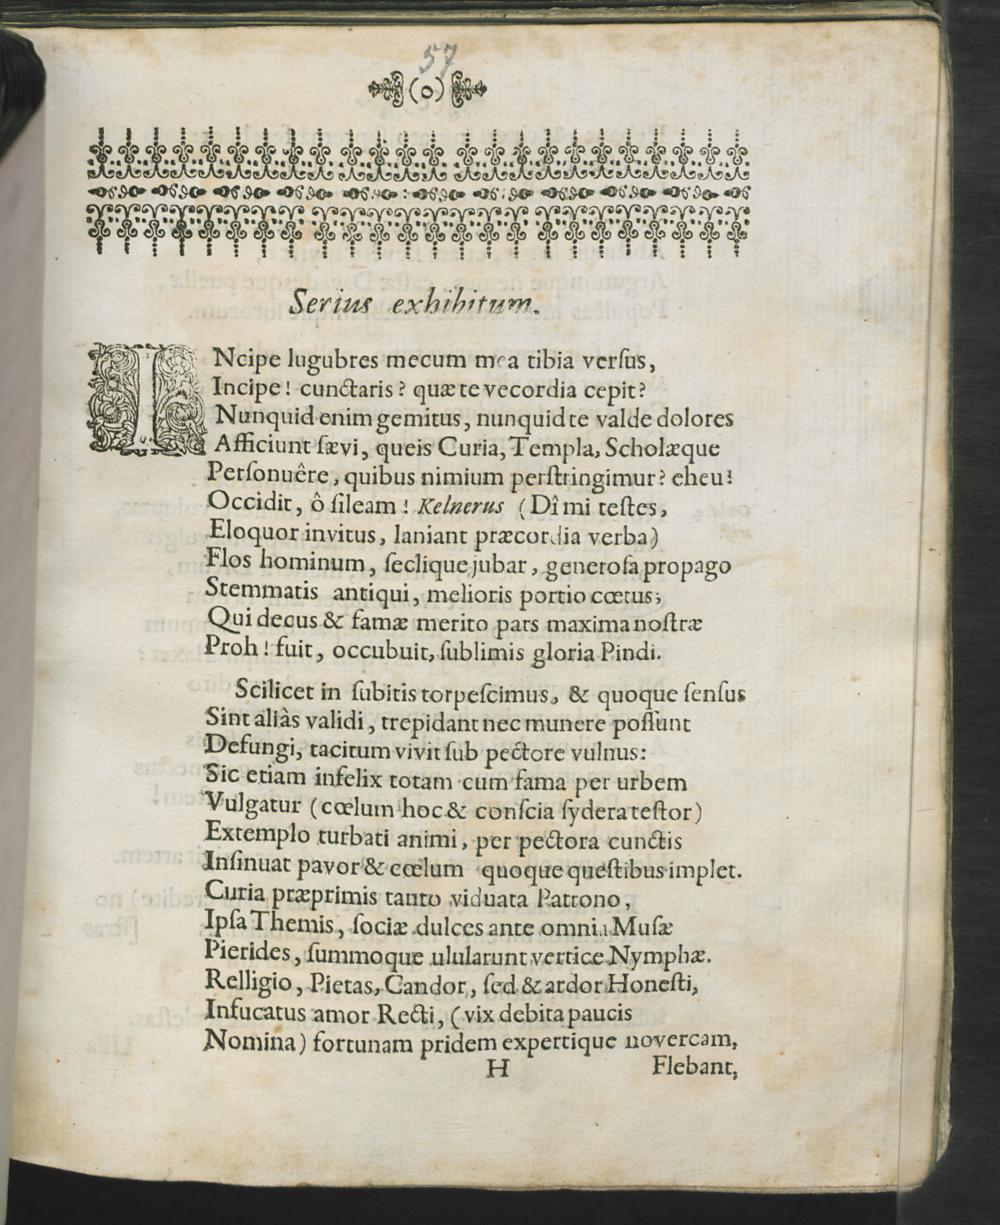 57
(o)
Serius exhibitum.
INcipe lugubres mecum mea tibia verſus,
Incipe! cunctaris? quæ te vecordia cepit?
Nunquid enim gemitus, nunquid te valde dolores
Afficiunt ſævi, queis Curia, Templa, Scholæque
Perſonuêre, quibus nimium perſtringimur? eheu!
Occidit, ô ſileam! Kelnerus (Dî mi teſtes,
Eloquor invitus, laniant præcordia verba)
Flos hominum, ſeclique jubar, generoſa propago
Stemmatis antiqui, melioris portio cœtus;
Qui decus & famæ merito pars maxima noſtræ
Proh! fuit, occubuit, ſublimis gloria Pindi.
Scilicet in ſubitis torpeſcimus, & quoque ſenſus
Sint aliàs validi, trepidant nec munere poſſunt
Defungi, tacitum vivit ſub pectore vulnus:
Sic etiam infelix totam cum fama per urbem
Vulgatur (cœlum hoc & conſcia ſydera teſtor)
Extemplo turbati animi, per pectora cunctis
Inſinuat pavor & cœlum quoque queſtibus implet.
Curia præprimis tanto viduata Patrono,
Ipſa Themis, ſociæ dulces ante omnia Muſæ
Pierides, ſummoque ulularunt vertice Nymphæ.
Relligio, Pietas, Candor, ſed & ardor Honeſti,
Infucatus amor Recti, (vix debita paucis
Nomina) fortunam pridem expertique novercam,
H Flebant,